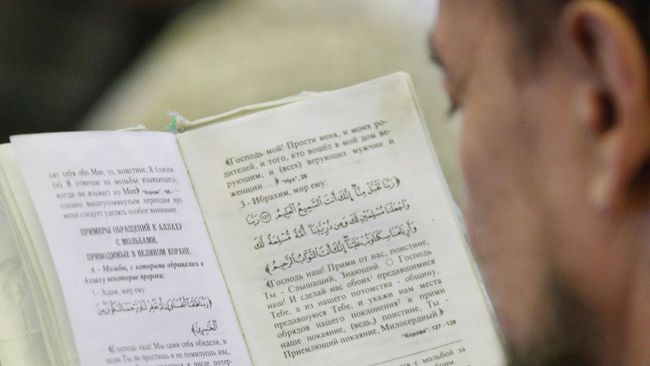 сят тебя обо Мне, то, поистине, Я близок
(к) Я отвечаю на мольбы взывающего,
когда он взывает ко Мне» "Корова",
однако вышеупомянутым периодам
времени следует уделять особое внимание.
ПРИМЕРЫ ОБРАЩЕНИЙ К АЛЛАХУ
С МОЛЬБАМИ,
ПРИВОДИМЫЕ В ВЕЛИКОМ КОРАНЕ.
А - Мольбы, с которыми обращались к
Аллаху некоторые пророки:
1 - Адам, мир ему:
«Господь наш! Мы сами себя обидели, и
если Ты не простишь и не помилуешь нас,
«Господь мой! Прости меня, и моих ро-
дителей, и того, кто вошёл в мой дом ве-
рующим, и (всех) верующих мужчин и
женщин ...» "Нух", 28
3 - Ибрахим, мир ему:
﴿رَبَّنَا تَقَبَّلْ مِنَّا إِنَّكَ أَنْتَ السَّمِيعُ الْعَلِيمُ رَبَّنَا
وَاجْعَلْنَا مُسْلِمَيْنِ لَكَ وَمِنْ ذُرِّيَّتِنَا أُمَّةً مُسْلِمَةً لَكَ
وَأَرِنَا مَنَاسِكَنَا وَتُبْ عَلَيْنَا إِنَّكَ أَنْتَ التَّوَّابُ الرَّحِيمُ﴾
«Господь наш! Прими от нас, поистине,
Ты - Слышащий, Знающий Господь
наш! И сделай нас обоих предавшимися
Тебе, а из нашего потомства - общину,
предавшуюся Тебе, и укажи нам места
обрядов нашего поклонения? и прими
наше покаяние, (ведь,) поистине, Ты -
Приемлющий покаяние, Милосердный!»
"Корова", 127 - 128
с мольбой за